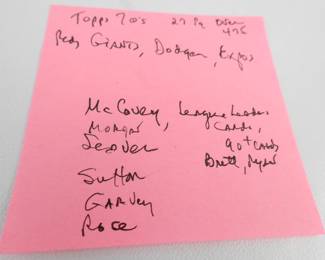 Topps 70's 27 Pg Over
475
Reds Giants, Dodgers, Expos
McCovey, League Leaders
Morgan Cards,
Seaver 90+ cards
Brett, Ryan
Sutton
Garvey
Rose